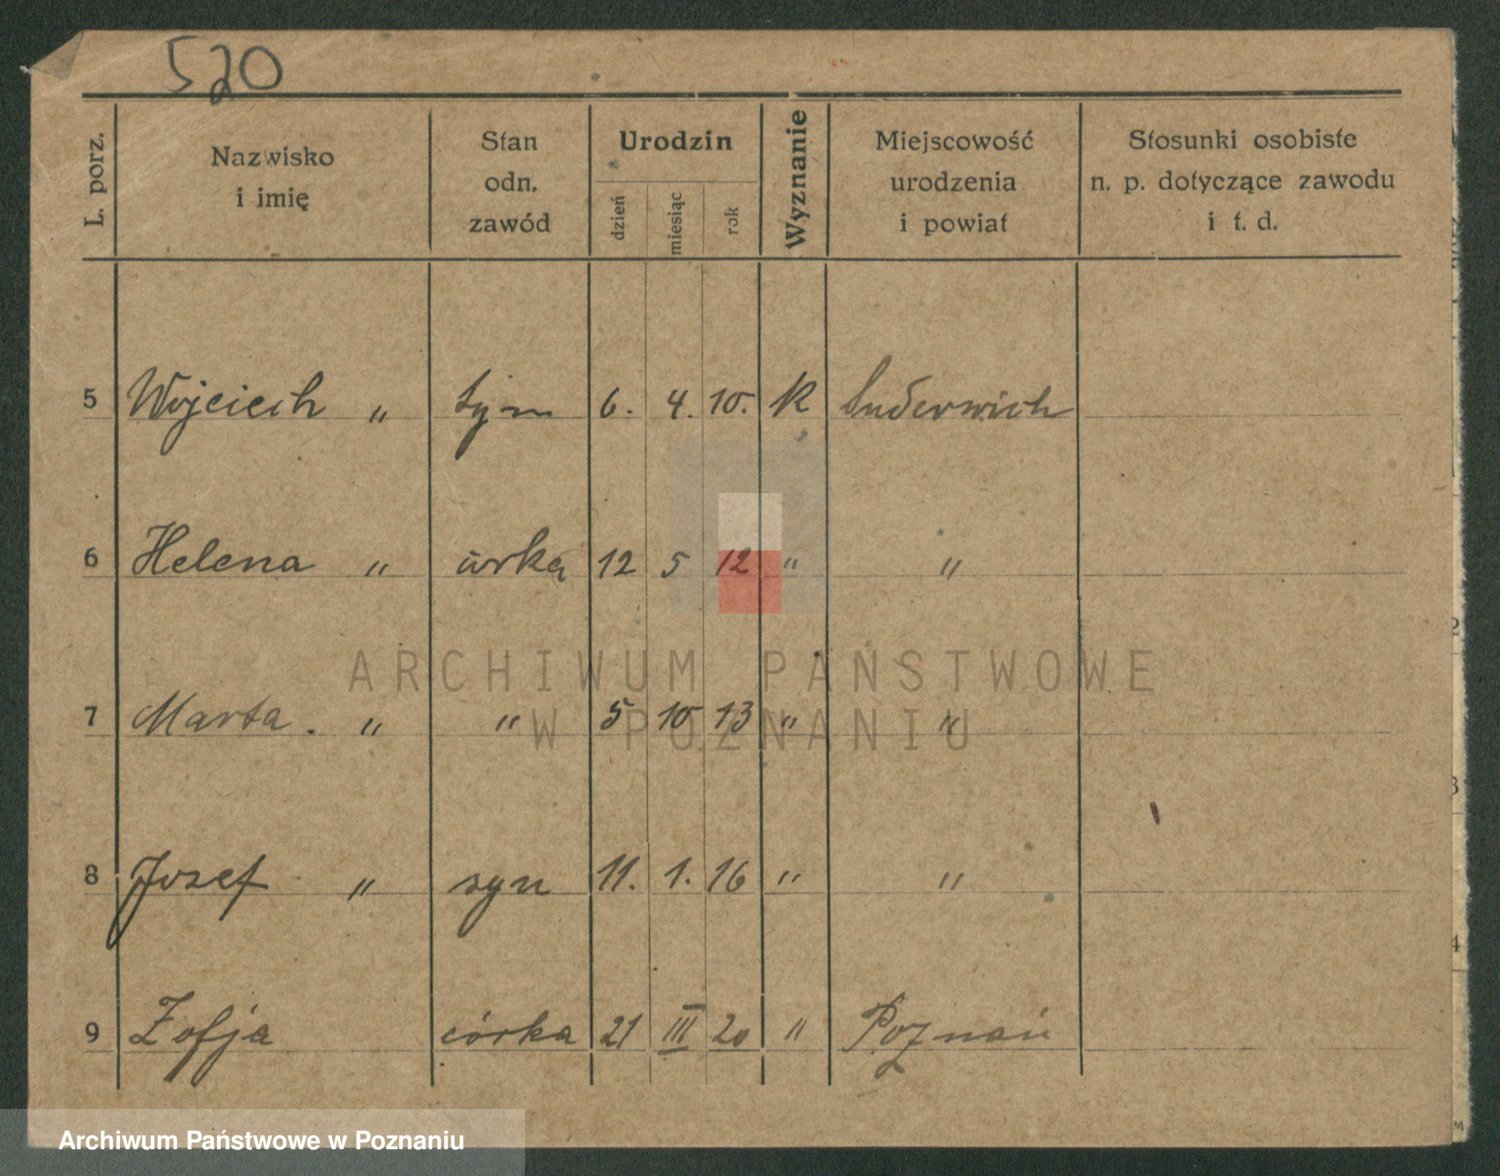 520
L. porz.
Nazwisko
i imię
Stan
odn.
zawód
Urodzin
dzień
miesiąc
rok
Wyznanie
Miejscowość
urodzenia
i powiat
Stosunki osobiste
n. p. dotyczące zawodu
i t. d.
5 Wojciech " 6. 4. 10. K
6 Helena " 12 5 12 " "
7 Marta . " " 5 10 13 " "
8 Jozef " syn 11. 1. 16 " "
9 Zofja córka 21 III 20 " Poznań
ARCHIWUM PAŃSTWOWE
W POZNANIU
Archiwum Państwowe w Poznaniu